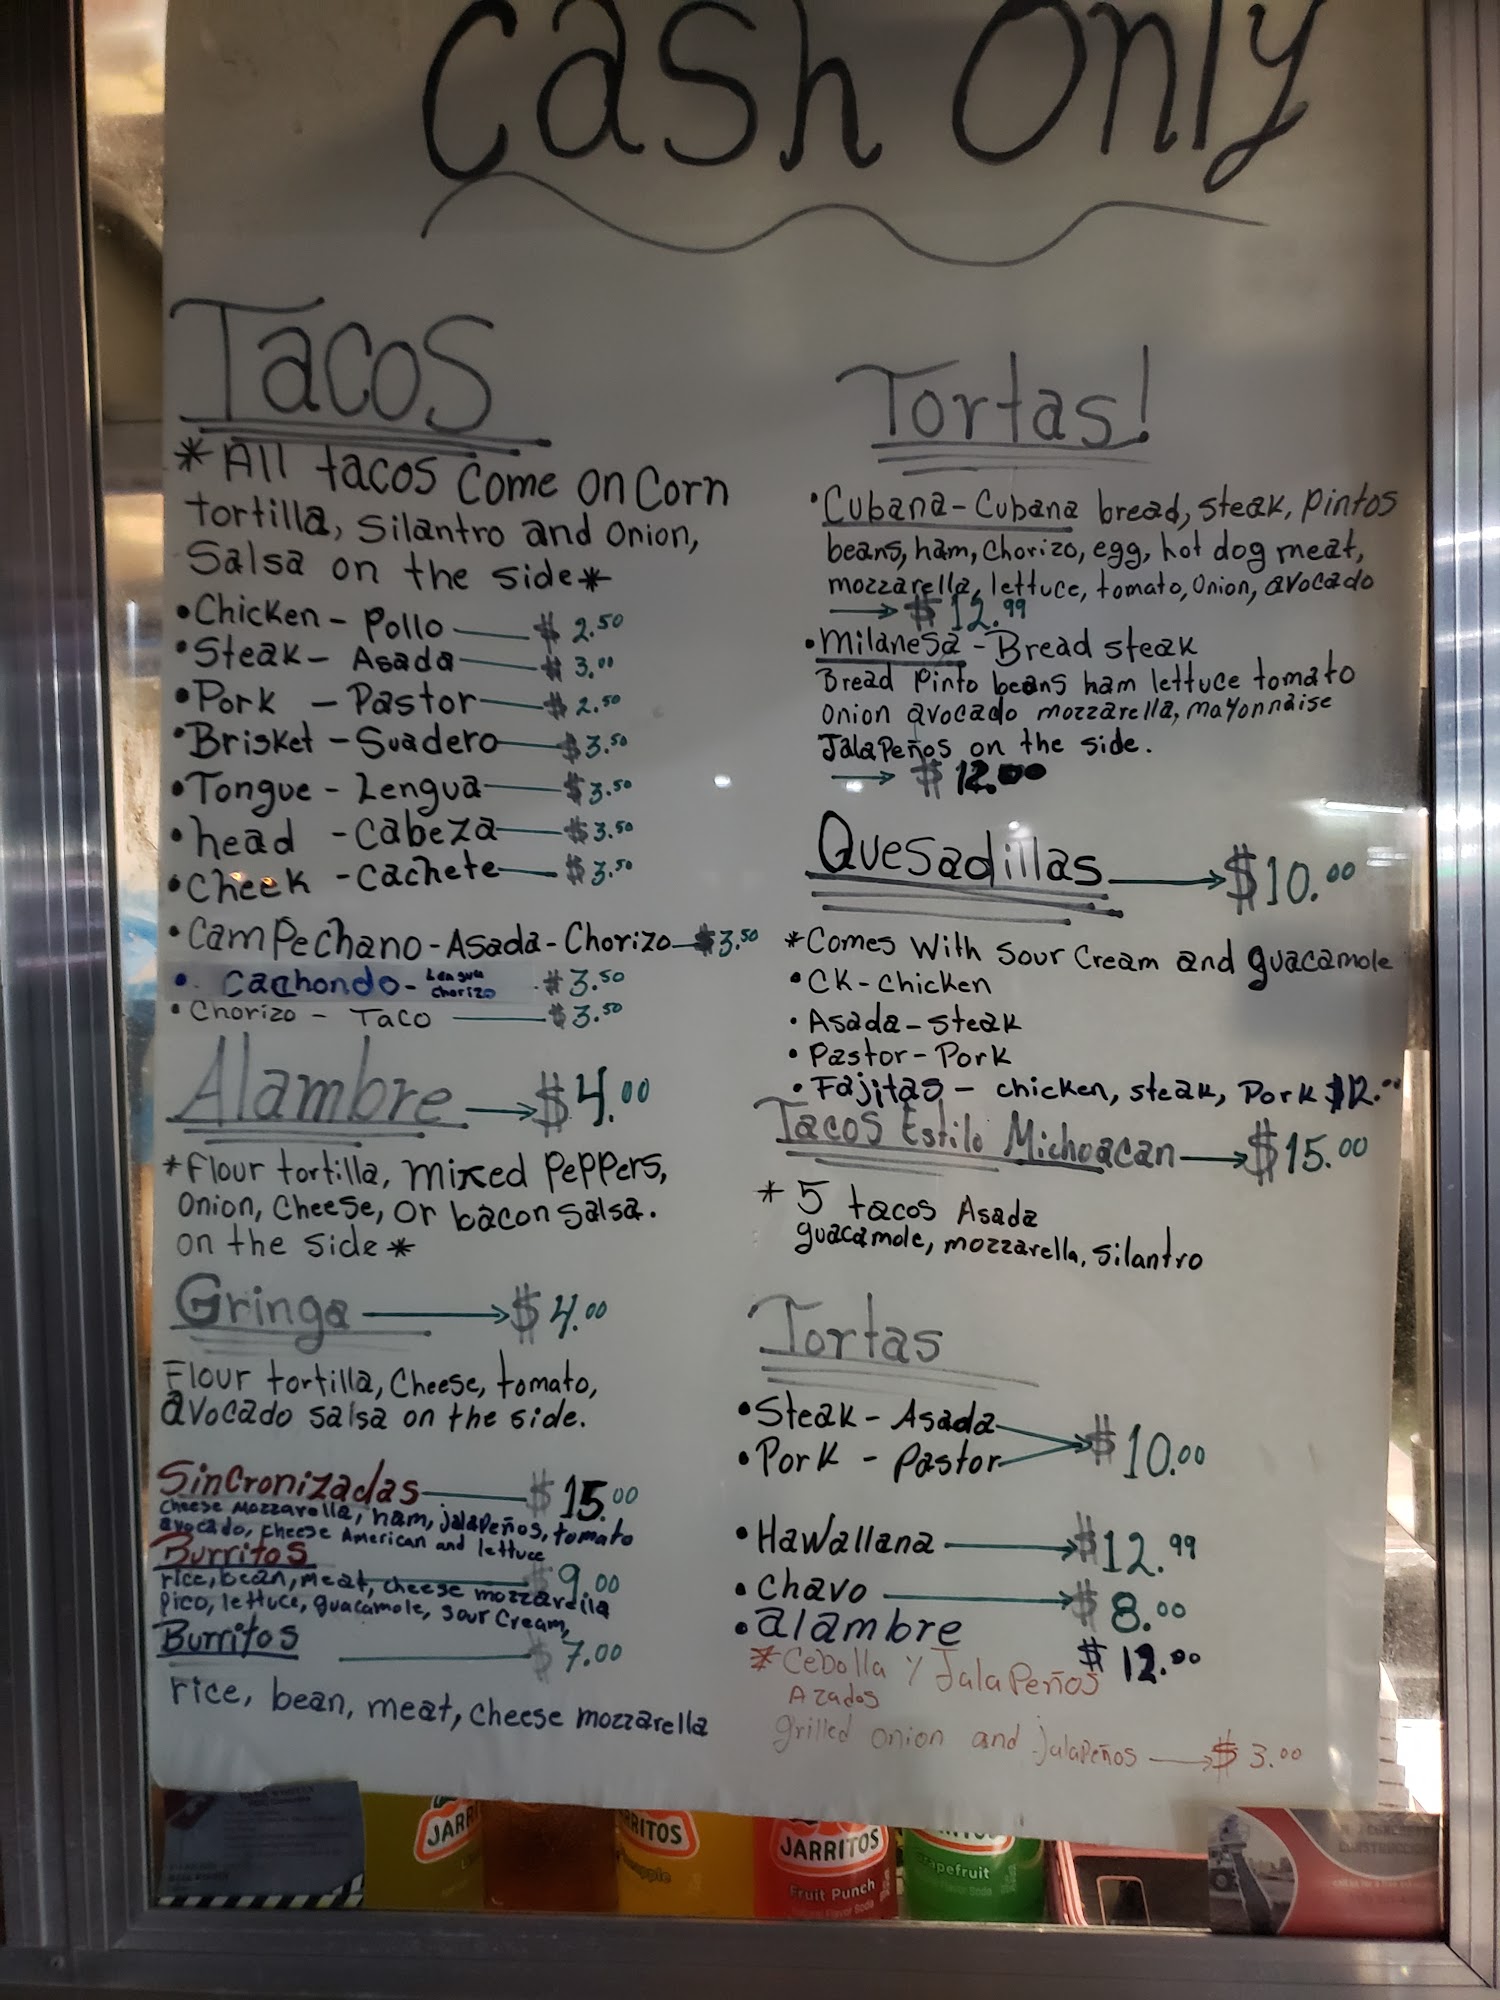 Cash Only
Tacos
*All tacos Come on Corn
tortilla, Silantro and onion,
Salsa on the side*
•Chicken - Pollo $2.50
•Steak - Asada $3.00
•Pork - Pastor $2.50
•Brisket - Suadero $3.50
•Tongue - Lengua $3.50
•head - cabeza $3.50
•Cheek - cachete $3.50
•Campechano - Asada - Chorizo $3.50
•Cachondo - Lengua Chorizo $3.50
•Chorizo - Taco $3.50
Alambre → $4.00
*Flour tortilla, mixed Peppers,
Onion, Cheese, or bacon Salsa.
on the side*
Gringa → $4.00
Flour tortilla, Cheese, tomato,
avocado salsa on the side.
Sincronizadas $15.00
Cheese Mozzarolla, ham, jalapeños, tomato
avocado, cheese American and lettuce
Burritos $9.00
rice, bean, meat, cheese mozzarella
Pico, lettuce, guacamole, sour Cream,
Burritos $7.00
rice, bean, meat, cheese mozzarella
Tortas!
•Cubana - Cubana bread, steak, Pintos
beans, ham, chorizo, egg, hot dog meat,
mozzarella, lettuce, tomato, Onion, avocado
→ $12.99
•Milanesa - Bread steak
Bread Pinto beans ham lettuce tomato
onion avocado mozzarella, mayonnaise
JalaPeños on the side.
→ $12.00
Quesadillas → $10.00
*Comes With Sour Cream and guacamole
•CK - chicken
•Asada - steak
•Pastor - Pork
•Fajitas - chicken, steak, Pork $12.00
Tacos Estilo Michoacan → $15.00
*5 tacos Asada
guacamole, mozzarella, silantro
Tortas
•Steak - Asada
•Pork - Pastor → $10.00
•Hawallana → $12.99
•Chavo → $8.00
•alambre $12.00
*Cebolla Y JalaPeños
Azados
grilled onion and jalapeños → $3.00
JARRITOS
Fruit Punch
Natural Flavor Soda